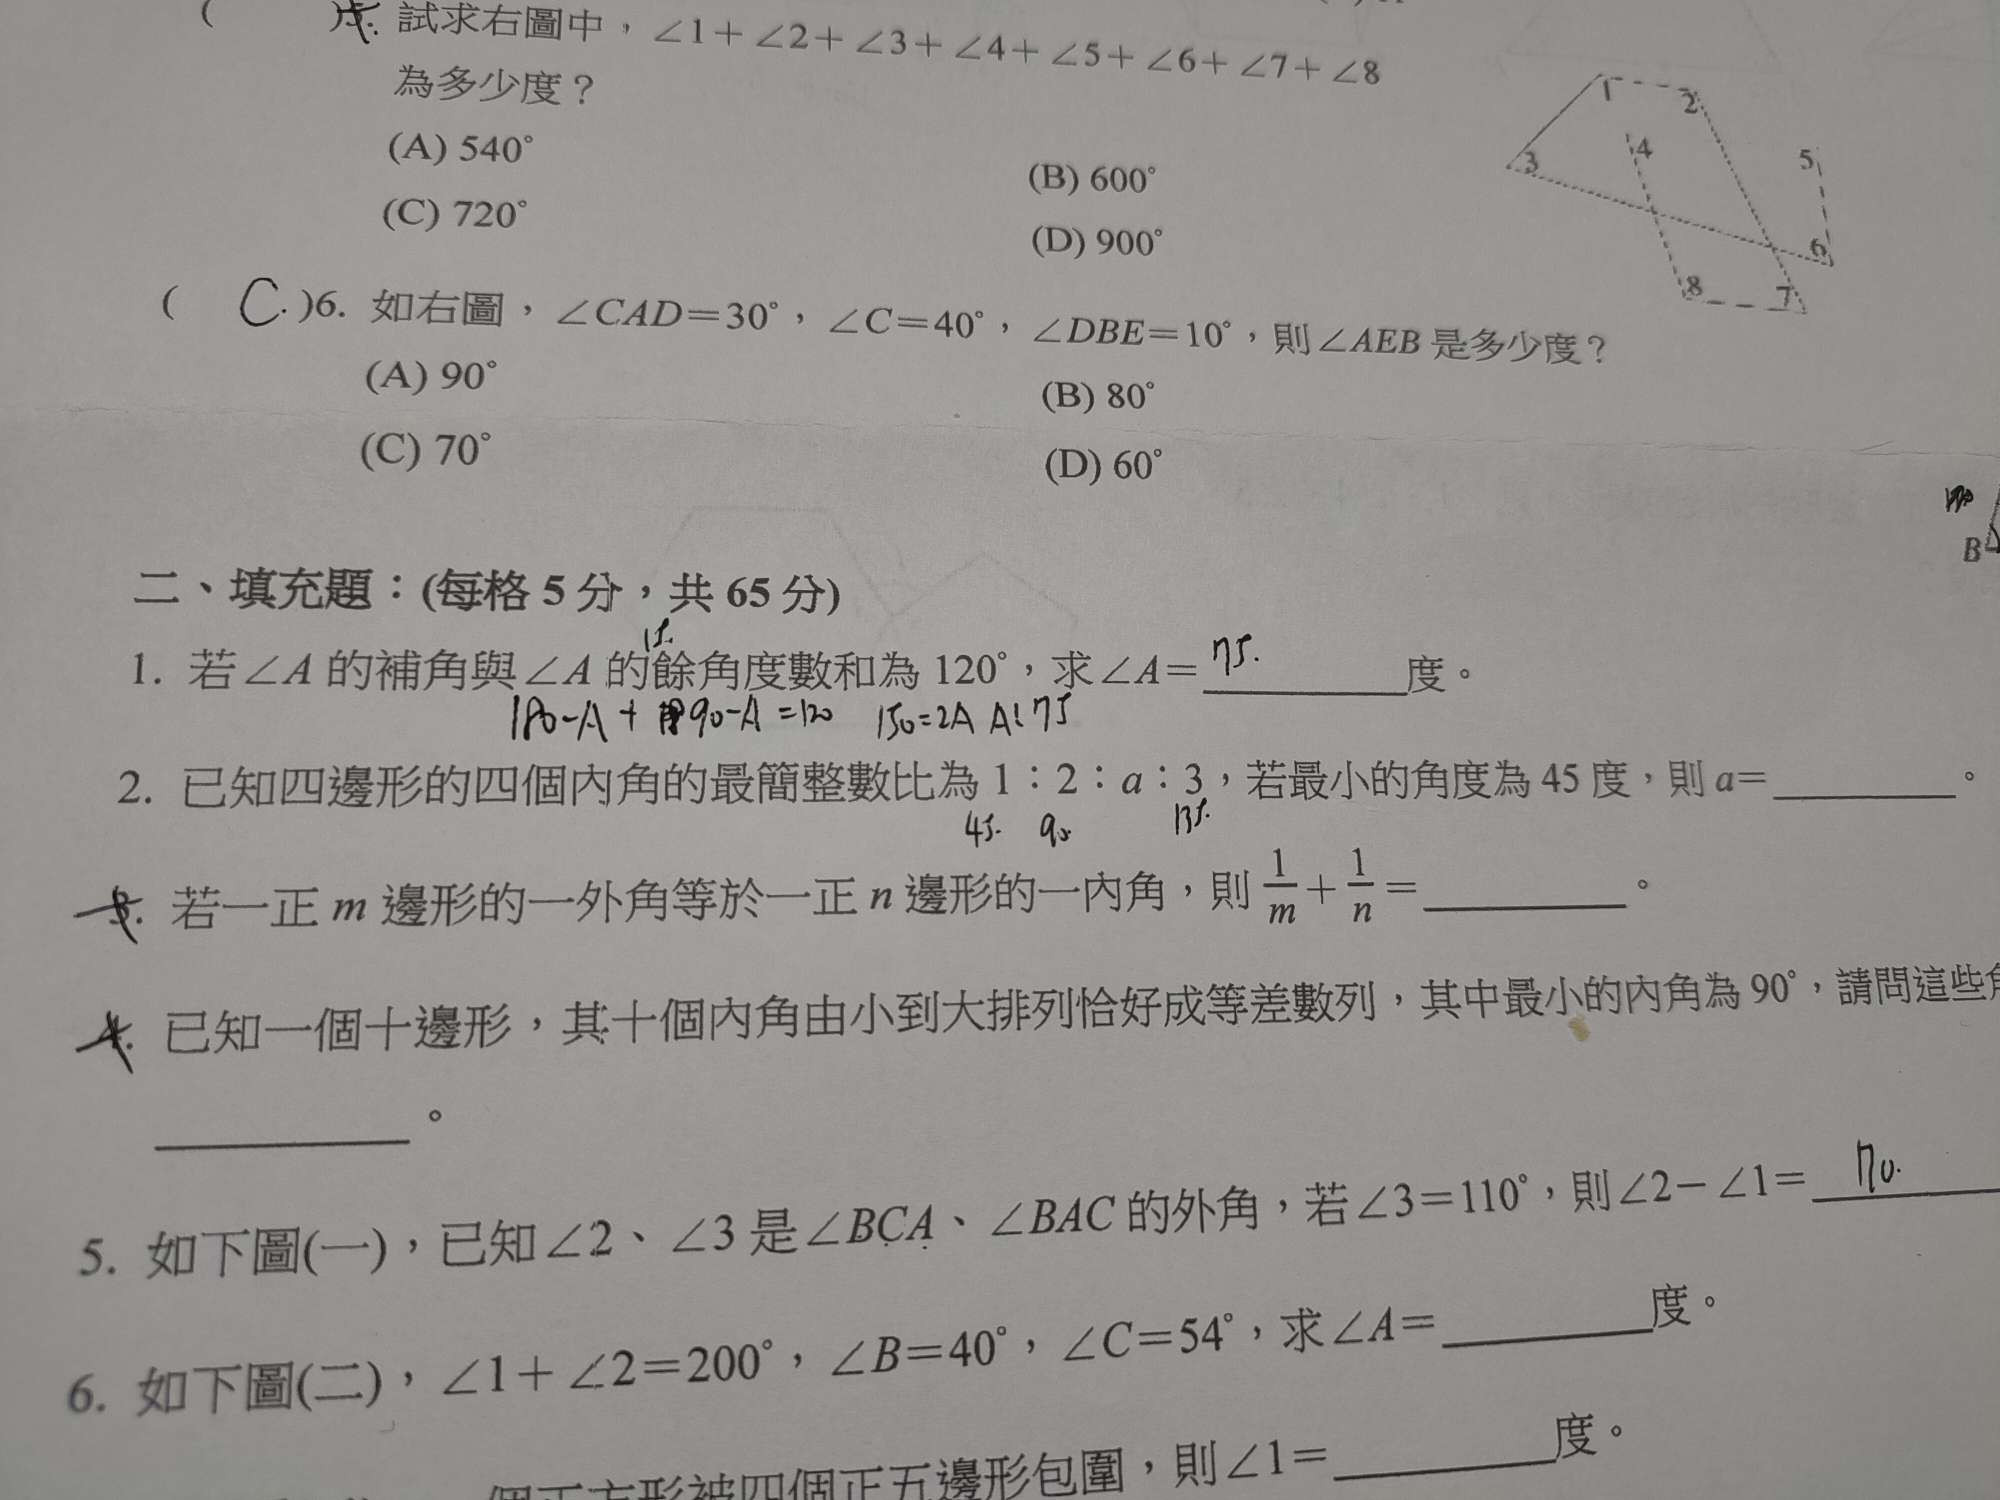 ( )5. 試求右圖中，∠1+∠2+∠3+∠4+∠5+∠6+∠7+∠8
為多少度？
(A) 540° (B) 600°
(C) 720° (D) 900°
1 2 3 4 5 6 7 8
( C. )6. 如右圖，∠CAD=30°，∠C=40°，∠DBE=10°，則∠AEB 是多少度？
(A) 90° (B) 80°
(C) 70° (D) 60°
B
二、填充題：(每格 5 分，共 65 分)
15.
1. 若∠A 的補角與∠A 的餘角度數和為 120°，求∠A= 75. 度。
180-A + 90-A =120 150=2A A=75
2. 已知四邊形的四個內角的最簡整數比為 1：2：a：3，若最小的角度為 45 度，則 a= 。
45. 90 135.
3. 若一正 m 邊形的一外角等於一正 n 邊形的一內角，則 1/m + 1/n = 。
4. 已知一個十邊形，其十個內角由小到大排列恰好成等差數列，其中最小的內角為 90°，請問這些角
。
5. 如下圖(一)，已知∠2、∠3 是∠BCA、∠BAC 的外角，若∠3=110°，則∠2−∠1= 70.
6. 如下圖(二)，∠1+∠2=200°，∠B=40°，∠C=54°，求∠A= 度。
個正方形被四個正五邊形包圍，則∠1= 度。